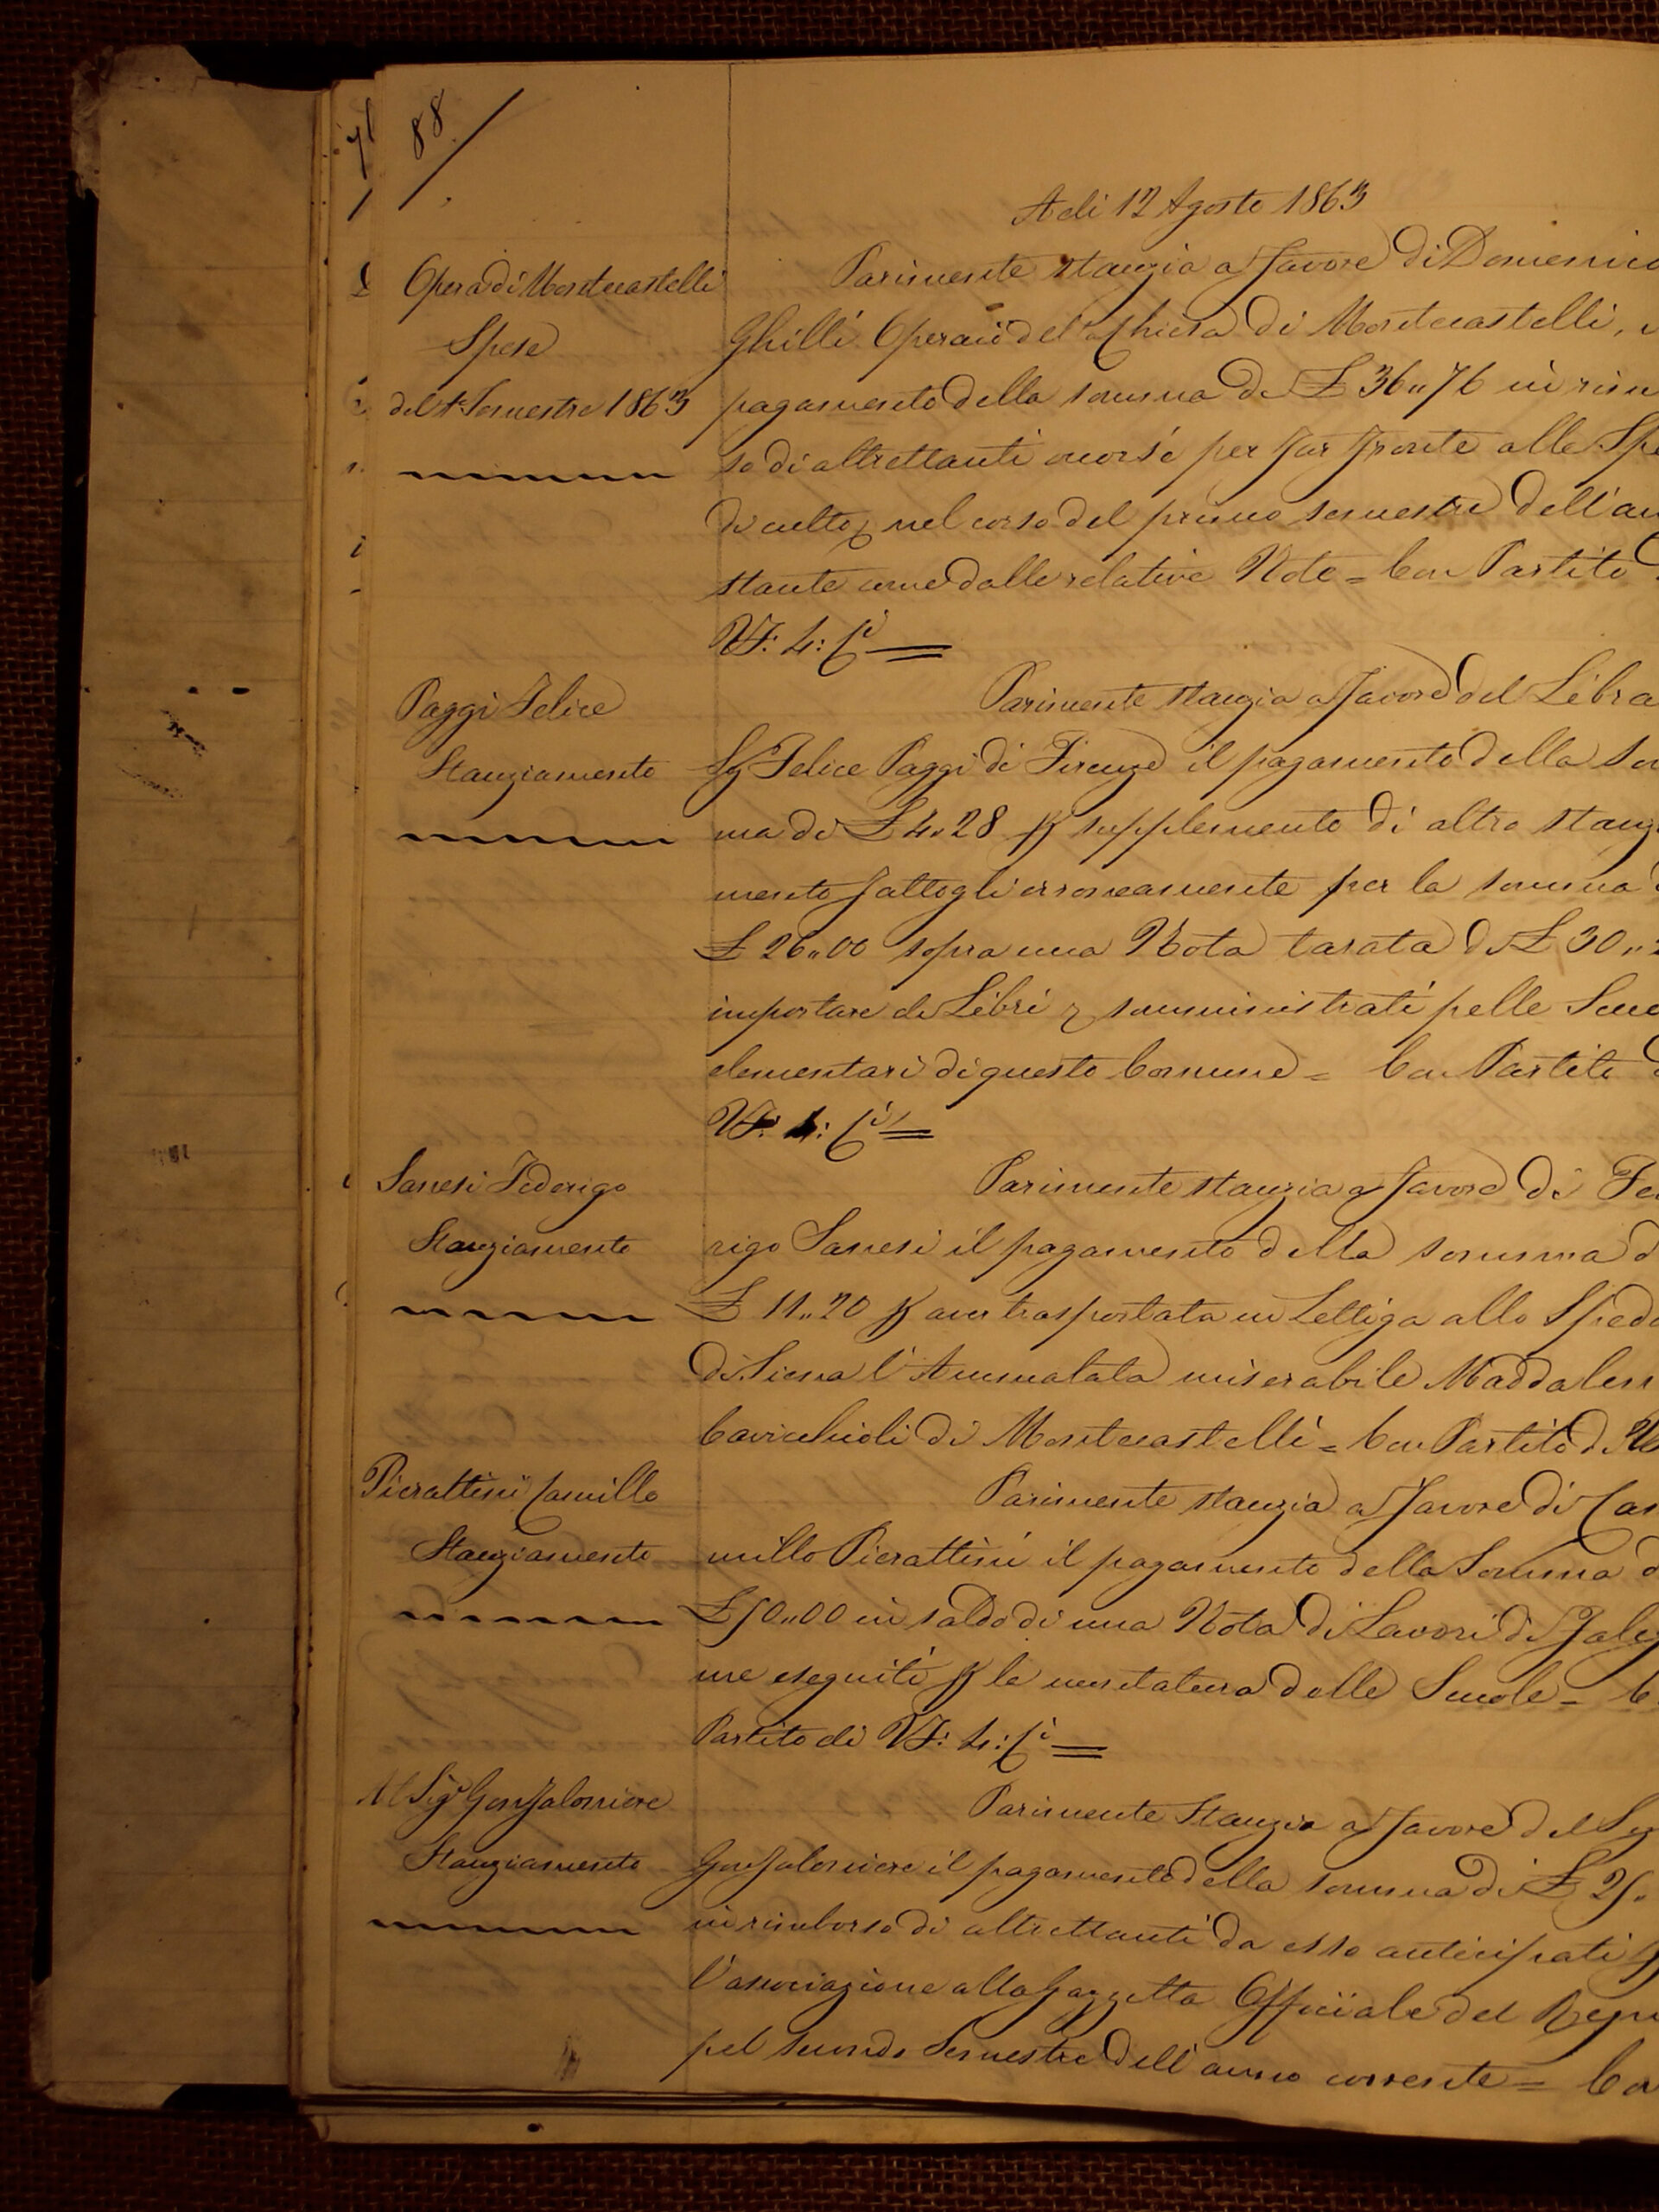 71
88
Adì 12 Agosto 1863
Opera di Montecastelli
Spese
del 1° Semestre 1863
Parimente stanzia a favore di Domenico
Ghilli Operaio della Chiesa di Montecastelli, i
pagamento della somma di £ 36,,76 in rim
so di altrettanti occorsi per far fronte alle Spe
di culto nel corso del primo semestre dell'an
stante come dalle relative Note = Con Partito d
VF: 4: Ci
Paggi Felice
Stanziamento
Parimente stanzia a favore del Libra
Sig Felice Paggi di Firenze il pagamento della Som
ma di £ 4,,28 p supplemento di altro stanzi
mento fattogli erroneamente per la somma d
£ 26,,00 sopra una Nota tarata di £ 30,,2
importare di Libri somministrati pelle Scuo
elementari di questo Comune = Con Partito d
VF: 4: Ci
Sanesi Federigo
Stanziamento
Parimente stanzia a favore di Fe
rigo Sanesi il pagamento della somma d
£ 11,,20 p aver trasportata in Lettiga allo Speda
di Siena l'Ammalata miserabile Maddalen
Cavicchioli di Montecastelli = Con Partito di V
Pierattini Camillo
Stanziamento
Parimente stanzia a favore di Ca
millo Pierattini il pagamento della Somma d
£ 50,,00 in saldo di una Nota di Lavori di Faleg
me eseguiti p la montatura delle Scuole = C
Partito di VF: 4: Ci
Al Sig.r Gonfaloniere
Stanziamento
Parimente Stanzia a favore del Sig
Gonfaloniere il pagamento della somma di £ 25,,
in rimborso di altrettanti da esso anticipati p
l'associazione alla Gazzetta Officiale del Regn
pel secondo Semestre dell'anno corrente = Con